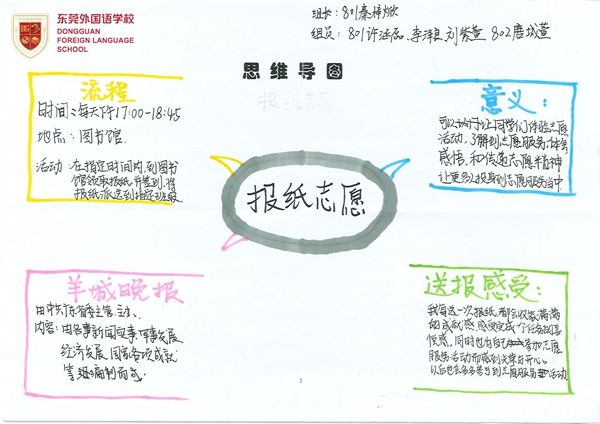 东莞外国语学校
DONGGUAN
FOREIGN LANGUAGE
SCHOOL
组长：801秦梓焮
组员：801许涵磊、李泽良、刘紫萱 802唐城萱
思维导图
流程
时间：每天下午17:00-18:45
地点：图书馆.
活动：在指定时间内,到图书
馆领取报纸,并签到,将
报纸派送到指定班级
意义：
可以让同学们体验志愿
活动,了解到志愿服务,体会
感悟,和传递志愿精神
让更多人投身到志愿服务当中
报纸志愿
羊城晚报
由中共广东省委主管、主办、
内容：由各事新闻实事、军事发展
经济发展,国家各项成就
等 编制而成.
送报感受：
我每送一次报纸,都会收获满满
的成就感,感受完成一个任务的喜
悦感,同时也为自己参加志愿
服务活动而感到光荣与开心。
以后也会多多参与到志愿服务活动